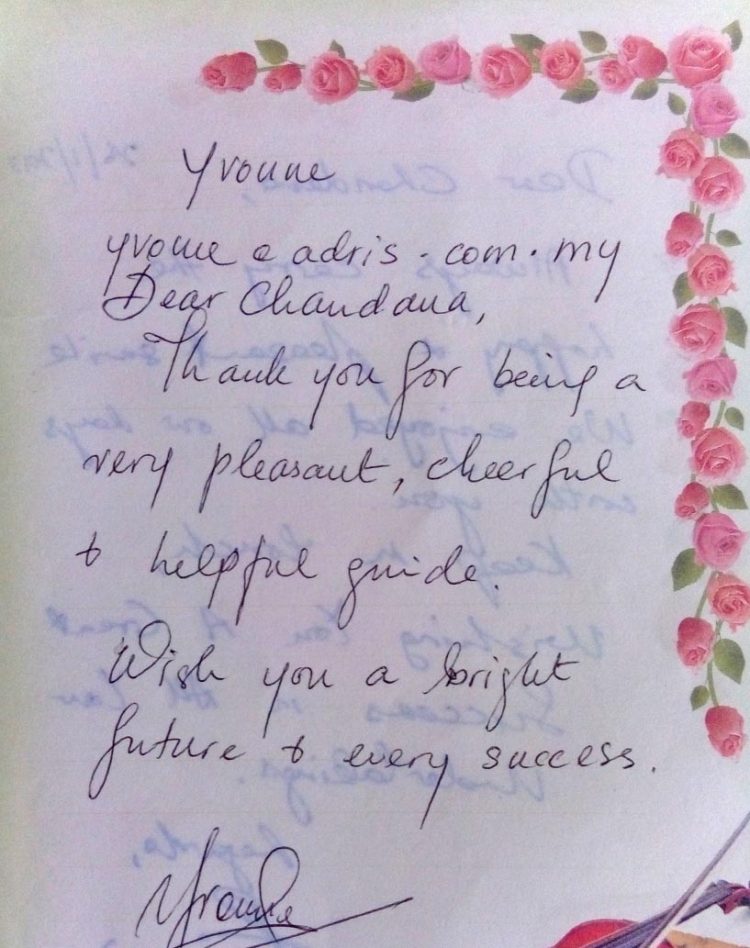 Yvonne
yvonne @ adris.com.my
Dear Chandana,
Thank you for being a
very pleasant, cheerful
& helpful guide.
Wish you a bright
future & every success.
Yvonne